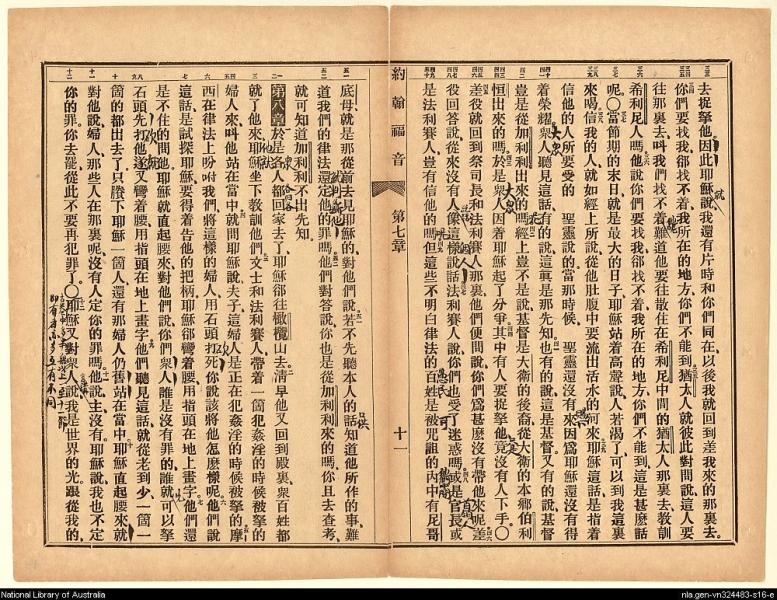 去捉拏他因此耶穌說我還有片時和你們同在以後我就回到差我來的那裏去
你們要找我卻找不着我所在的地方你們不能到猶太人就彼此對問說這人要
往那裏去呌我們找不着難道他要往散住在希利尼中間的猶太人那裏去教訓
希利尼人嗎他說你們要找我卻找不着我所在的地方你們不能到這是甚麼話
呢〇當節期的末日就是最大的日子耶穌站着高聲說人若渴了可以到我這裏
來喝信我的人就如經上所說從他肚腹中要流出活水的河來耶穌這話是指着
信他的人所要受的 聖靈說的當那時候 聖靈還沒有來因爲耶穌還沒有得
着榮耀衆人聽見這話有的說這眞是那先知也有的說這是基督又有的說基督
豈是從加利利出來的嗎經上豈不是說基督是大衛的後裔從大衛的本鄉伯利
恒出來的嗎於是衆人因着耶穌起了分爭其中有人要捉拏他竟沒有人下手〇
差役就回到祭司長和法利賽人那裏他們便問說你們爲甚麼沒有帶他來呢差
役回答說從來沒有人像這樣說話法利賽人說你們也受了迷惑嗎或是官長或
是法利賽人豈有信他的嗎但這些不明白律法的百姓是被咒詛的內中有尼哥
約翰福音 第七章 十一
底母就是那從前去見耶穌的對他們說若不先聽本人的話知道他所作的事難
道我們的律法還定他的罪嗎他們對答說你也是從加利利來的嗎你且去查考
就可知道加利利不出先知
第八章於是各人都回家去了耶穌卻往橄欖山去清早他又回到殿裏衆百姓都
就了他來耶穌坐下教訓他們文士和法利賽人帶着一箇犯姦淫的時候被拏的
婦人來呌他站在當中就問耶穌說夫子這婦人是正在犯姦淫的時候被拏的摩
西在律法上吩咐我們將這樣的婦人用石頭打死你說該將他怎麼樣呢他們說
這話是試探耶穌要得着告他的把柄耶穌卻彎着腰用指頭在地上畫字他們還
是不住的問他耶穌就直起腰來對他們說你們衆人誰是沒有罪的誰就可以拏
石頭先打他遂又彎着腰用指頭在地上畫字他們聽見這話就從老到少一箇一
箇的都出去了只賸下耶穌一箇人還有那婦人仍舊站在當中耶穌直起腰來就
對他說婦人那些人在那裏呢沒有人定你的罪嗎他說主沒有耶穌說我也不定
你的罪你去罷從此不要再犯罪了〇耶穌又對衆人說我是世界的光跟從我的
National Library of Australia
nla.gen-vn324483-s16-e